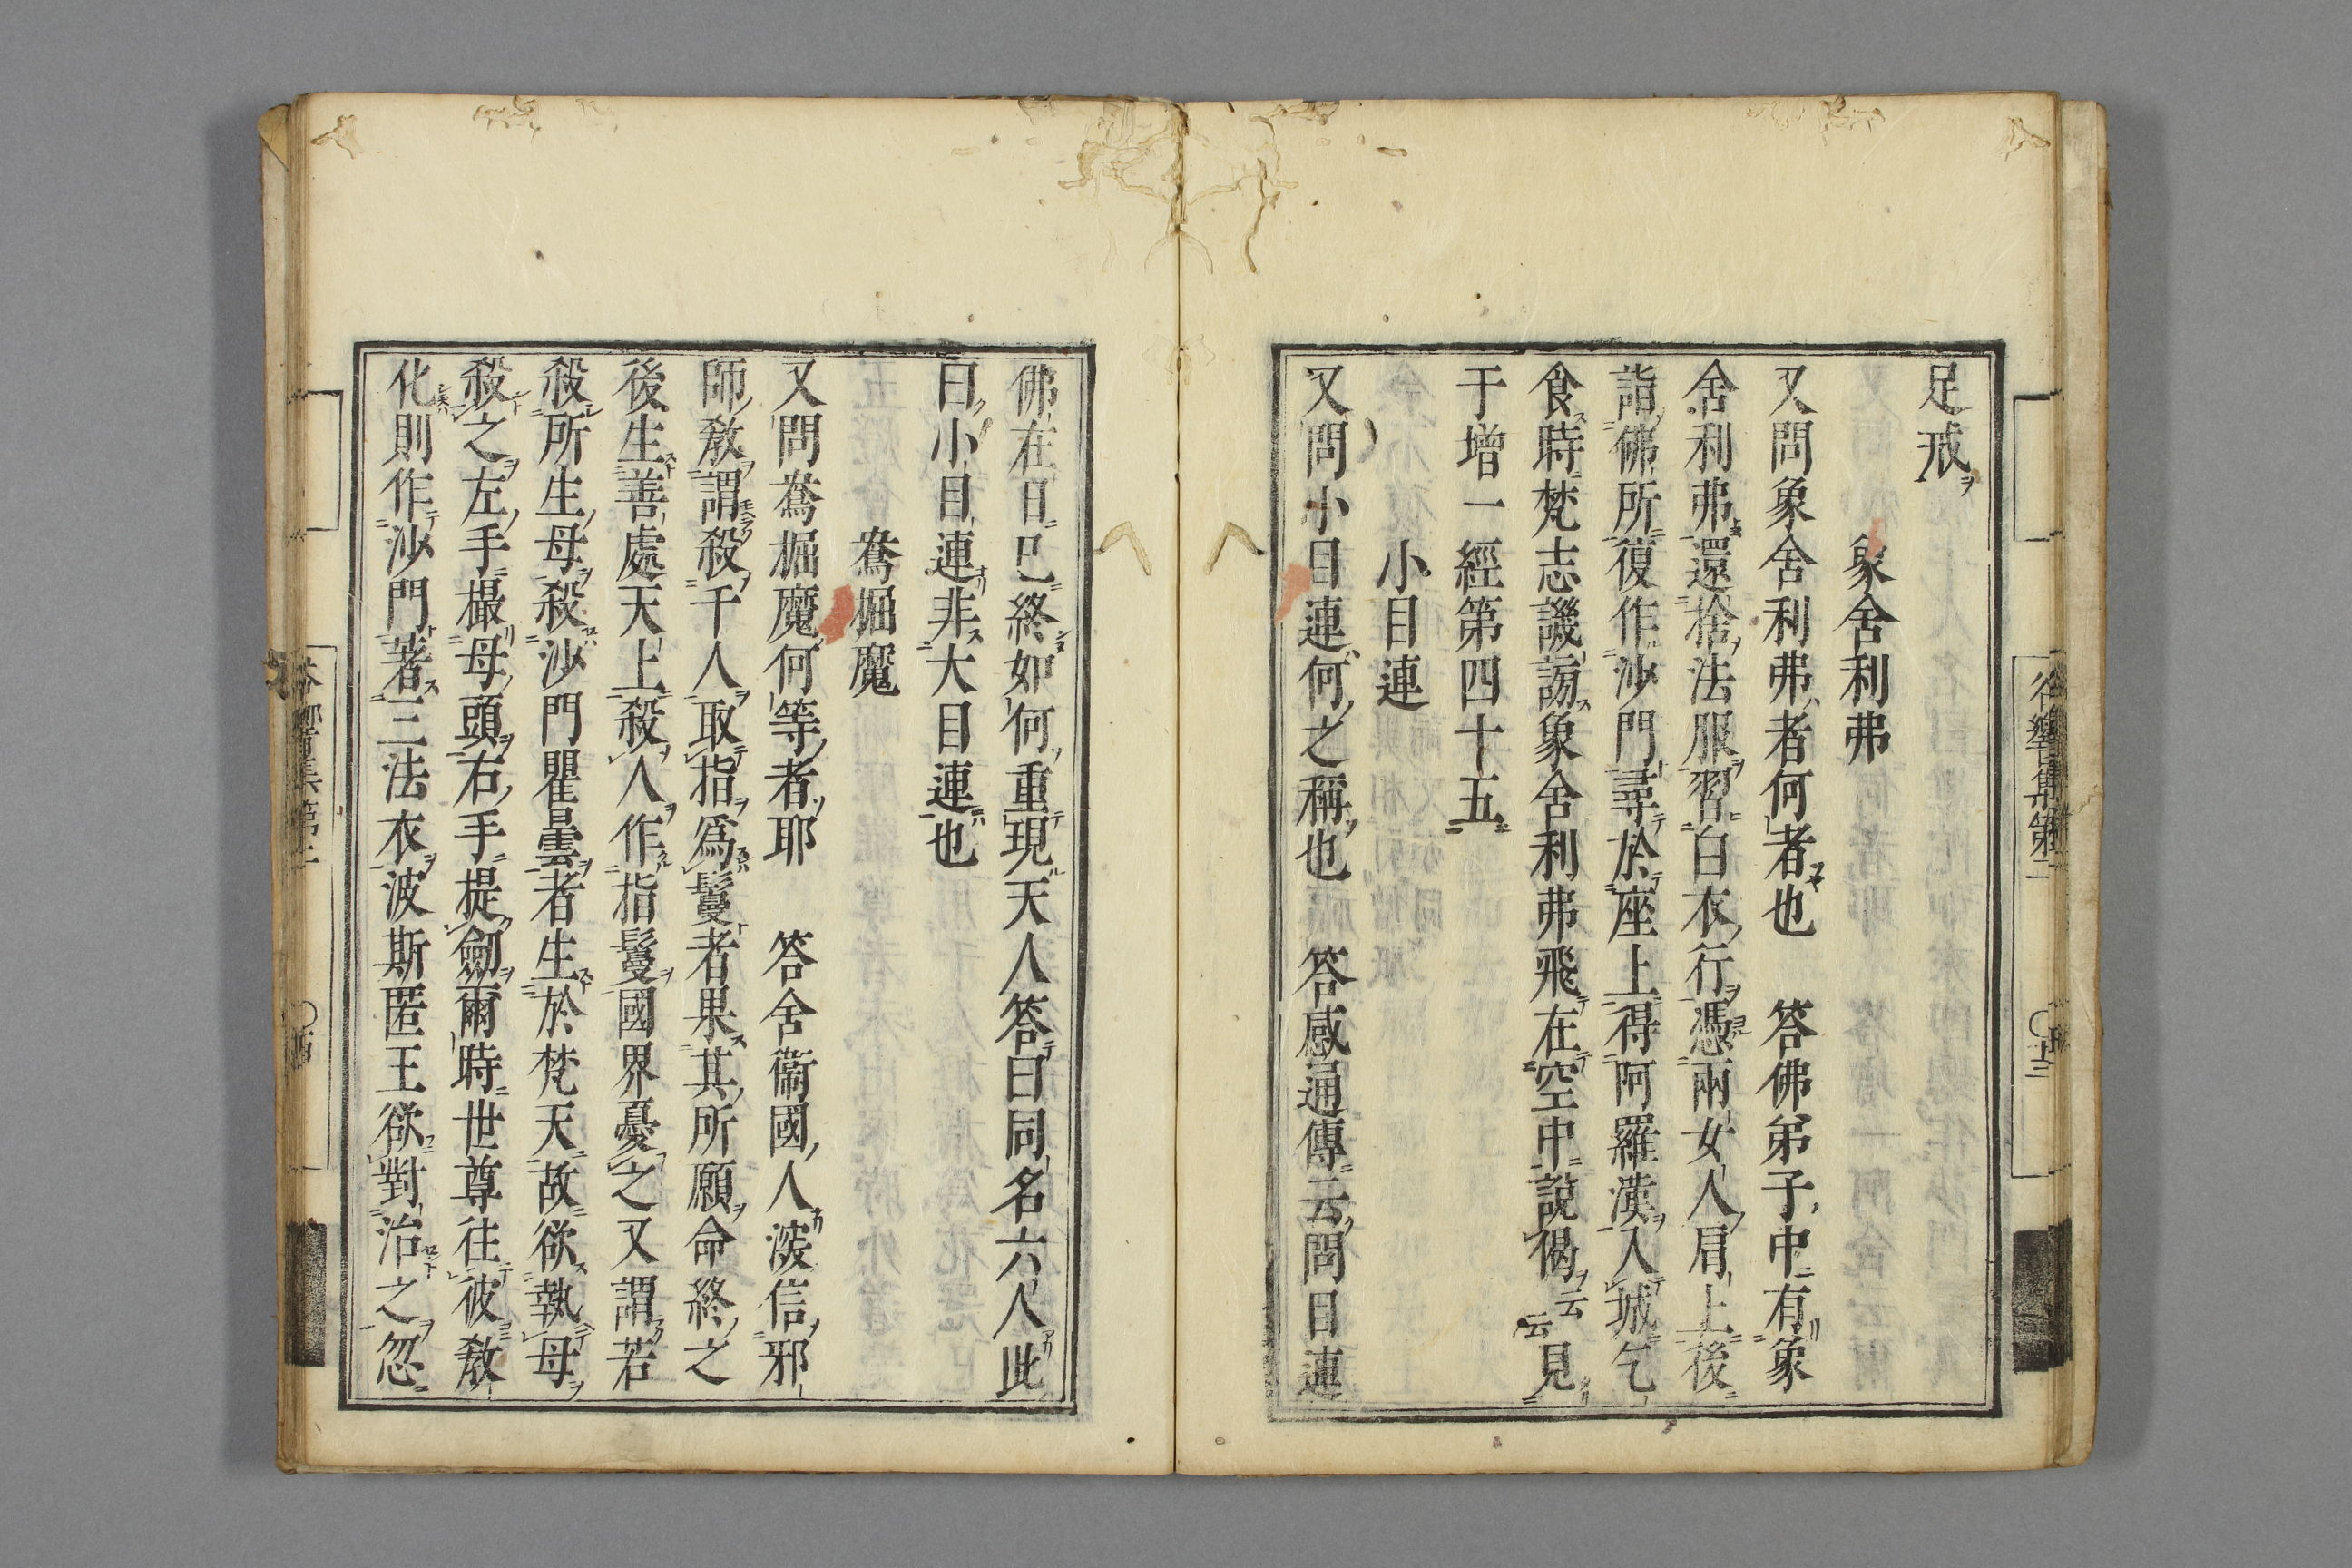 足戒
象舍利弗
又問象舍利弗者何者也　答佛弟子中有象
舍利弗還捨法服習白衣行憑兩女人肩上後
詣佛所復作沙門尋於座上得阿羅漢入城乞
食時梵志譏謗象舍利弗飛在空中說偈云云見
于增一經第四十五
小目連
又問小目連何之稱也　答感通傳云問目連
佛在日已終如何重現天人答曰同名六人此
曰小目連非大目連也
鴦堀魔
又問鴦堀魔何等者耶　答舍衞國人波信邪
師教謂殺千人取指爲鬘者果其所願命終之
後生善處天上殺人作指鬘國界憂之又謂若
殺所生母殺沙門瞿曇者生於梵天故欲執母
殺之左手撮母頭右手提劒爾時世尊往彼教
化則作沙門著三法衣波斯匿王欲對治之忽